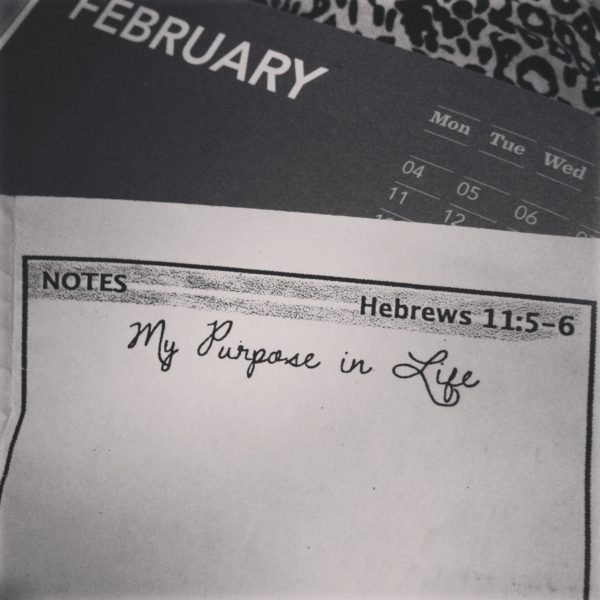 FEBRUARY
Mon Tue Wed
04 05 06
11 12
NOTES
Hebrews 11:5-6
My Purpose in Life